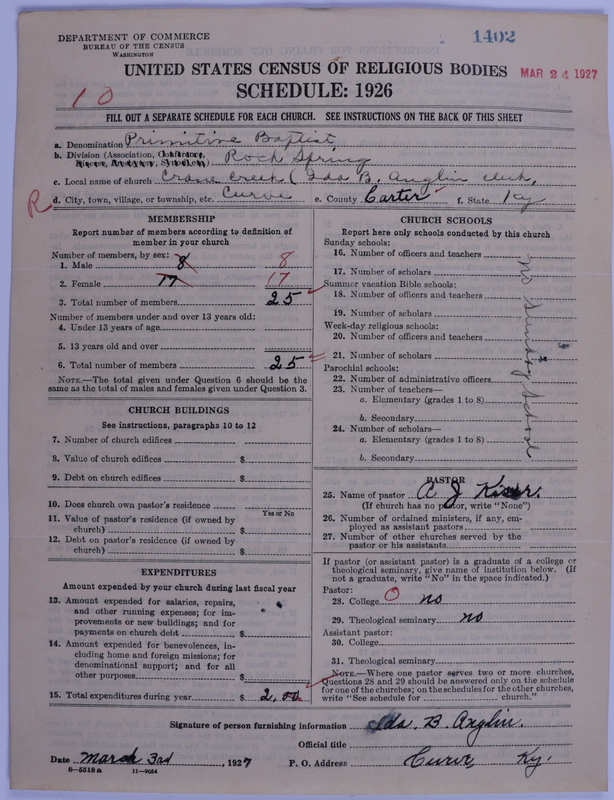 DEPARTMENT OF COMMERCE
BUREAU OF THE CENSUS
WASHINGTON
1402
UNITED STATES CENSUS OF RELIGIOUS BODIES
MAR 24 1927
SCHEDULE: 1926
10
FILL OUT A SEPARATE SCHEDULE FOR EACH CHURCH. SEE INSTRUCTIONS ON THE BACK OF THIS SHEET
a. Denomination Primitive Baptist
b. Division (Association, Conference, Diocese, Presbytery, Synod, etc.) Rock Spring
c. Local name of church Crane Creek (Ida B. Anglin clerk,
R d. City, town, village, or township, etc. Curve e. County Carter f. State Ky
MEMBERSHIP
Report number of members according to definition of
member in your church
Number of members, by sex:
1. Male 8 8
2. Female 17 17
3. Total number of members 25
Number of members under and over 13 years old:
4. Under 13 years of age
5. 13 years old and over
6. Total number of members 25
NOTE.—The total given under Question 6 should be the
same as the total of males and females given under Question 3.
CHURCH BUILDINGS
See instructions, paragraphs 10 to 12
7. Number of church edifices
8. Value of church edifices $
9. Debt on church edifices $
10. Does church own pastor's residence
Yes or No
11. Value of pastor's residence (if owned by
church) $
12. Debt on pastor's residence (if owned by
church) $
EXPENDITURES
Amount expended by your church during last fiscal year
13. Amount expended for salaries, repairs,
and other running expenses; for im-
provements or new buildings; and for
payments on church debt $
14. Amount expended for benevolences, in-
cluding home and foreign missions; for
denominational support; and for all
other purposes $
15. Total expenditures during year $ 2.00
CHURCH SCHOOLS
Report here only schools conducted by this church
Sunday schools:
16. Number of officers and teachers
17. Number of scholars
Summer vacation Bible schools:
18. Number of officers and teachers
19. Number of scholars
Week-day religious schools:
20. Number of officers and teachers
21. Number of scholars
Parochial schools:
22. Number of administrative officers
23. Number of teachers—
a. Elementary (grades 1 to 8)
b. Secondary
24. Number of scholars—
a. Elementary (grades 1 to 8)
b. Secondary
no Sunday School
PASTOR
25. Name of pastor A J Kiser.
(If church has no pastor, write "None")
26. Number of ordained ministers, if any, em-
ployed as assistant pastors
27. Number of other churches served by the
pastor or his assistants
If pastor (or assistant pastor) is a graduate of a college or
theological seminary, give name of institution below. (If
not a graduate, write "No" in the space indicated.)
Pastor:
28. College 0 no
29. Theological seminary no
Assistant pastor:
30. College
31. Theological seminary
NOTE.—Where one pastor serves two or more churches,
Questions 28 and 29 should be answered only on the schedule
for one of the churches; on the schedules for the other churches,
write "See schedule for church."
Signature of person furnishing information Ida. B. Anglin.
Official title
Date March 3rd, 1927 P. O. Address Curve, Ky.
8—5518a 11—9034